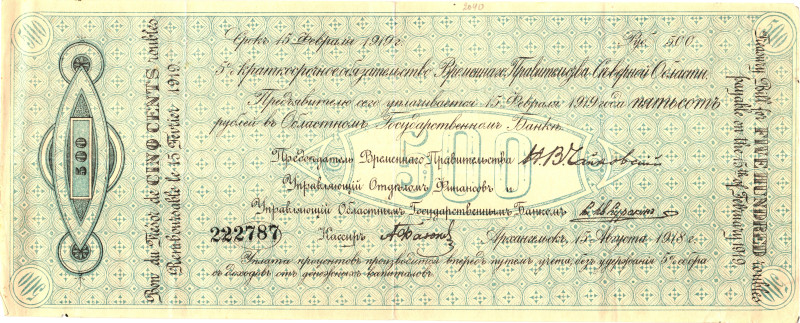 2040
500
Срокъ 15 Февраля 1919 г.
Руб. 500.
5% краткосрочное обязательство Временнаго Правительства Сѣверной Области.
Предъявителю сего уплачивается 15 Февраля 1919 года пятьсотъ
рублей въ Областномъ Государственномъ Банкѣ.
500
Предсѣдатель Временнаго Правительства Н. В. Чайковскій
Управляющій Отдѣломъ Финансовъ и
Управляющій Областнымъ Государственнымъ Банкомъ
222787
Кассиръ
Архангельскъ, 15 Августа 1918 г.
Уплата процентовъ производится впередъ путемъ учета, безъ удержанія 5% сбора
съ доходовъ отъ денежныхъ капиталовъ.
Bon du Trésor de CINQ CENTS roubles
Remboursable le 15 Février 1919.
500
Treasury Bill for FIVE HUNDRED roubles
payable on the 15th of February 1919.
500
500
500